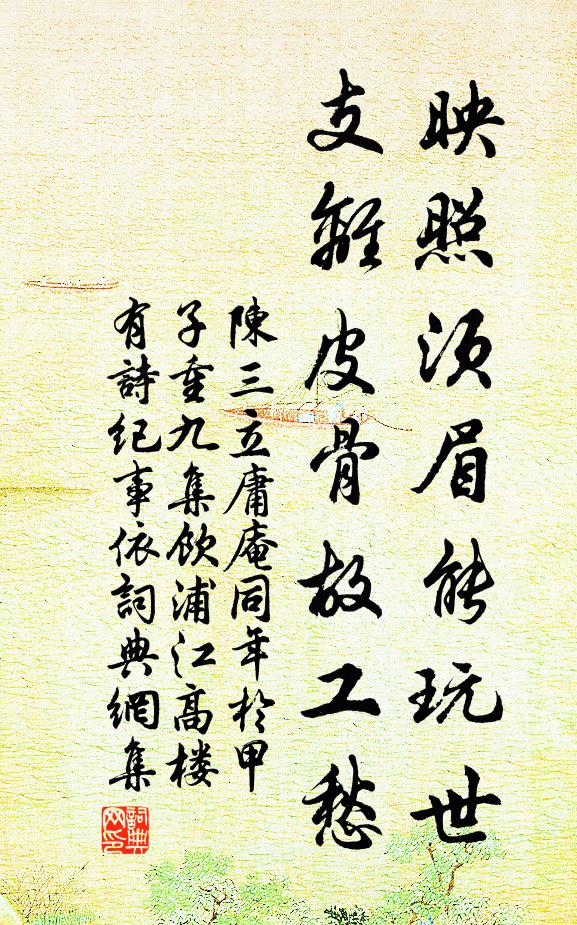 映照須眉能玩世
支離皮骨故工愁
陳三立庸庵同年於甲
子重九集飲浦江高楼
有詩纪事依詞典網集
詞典网印